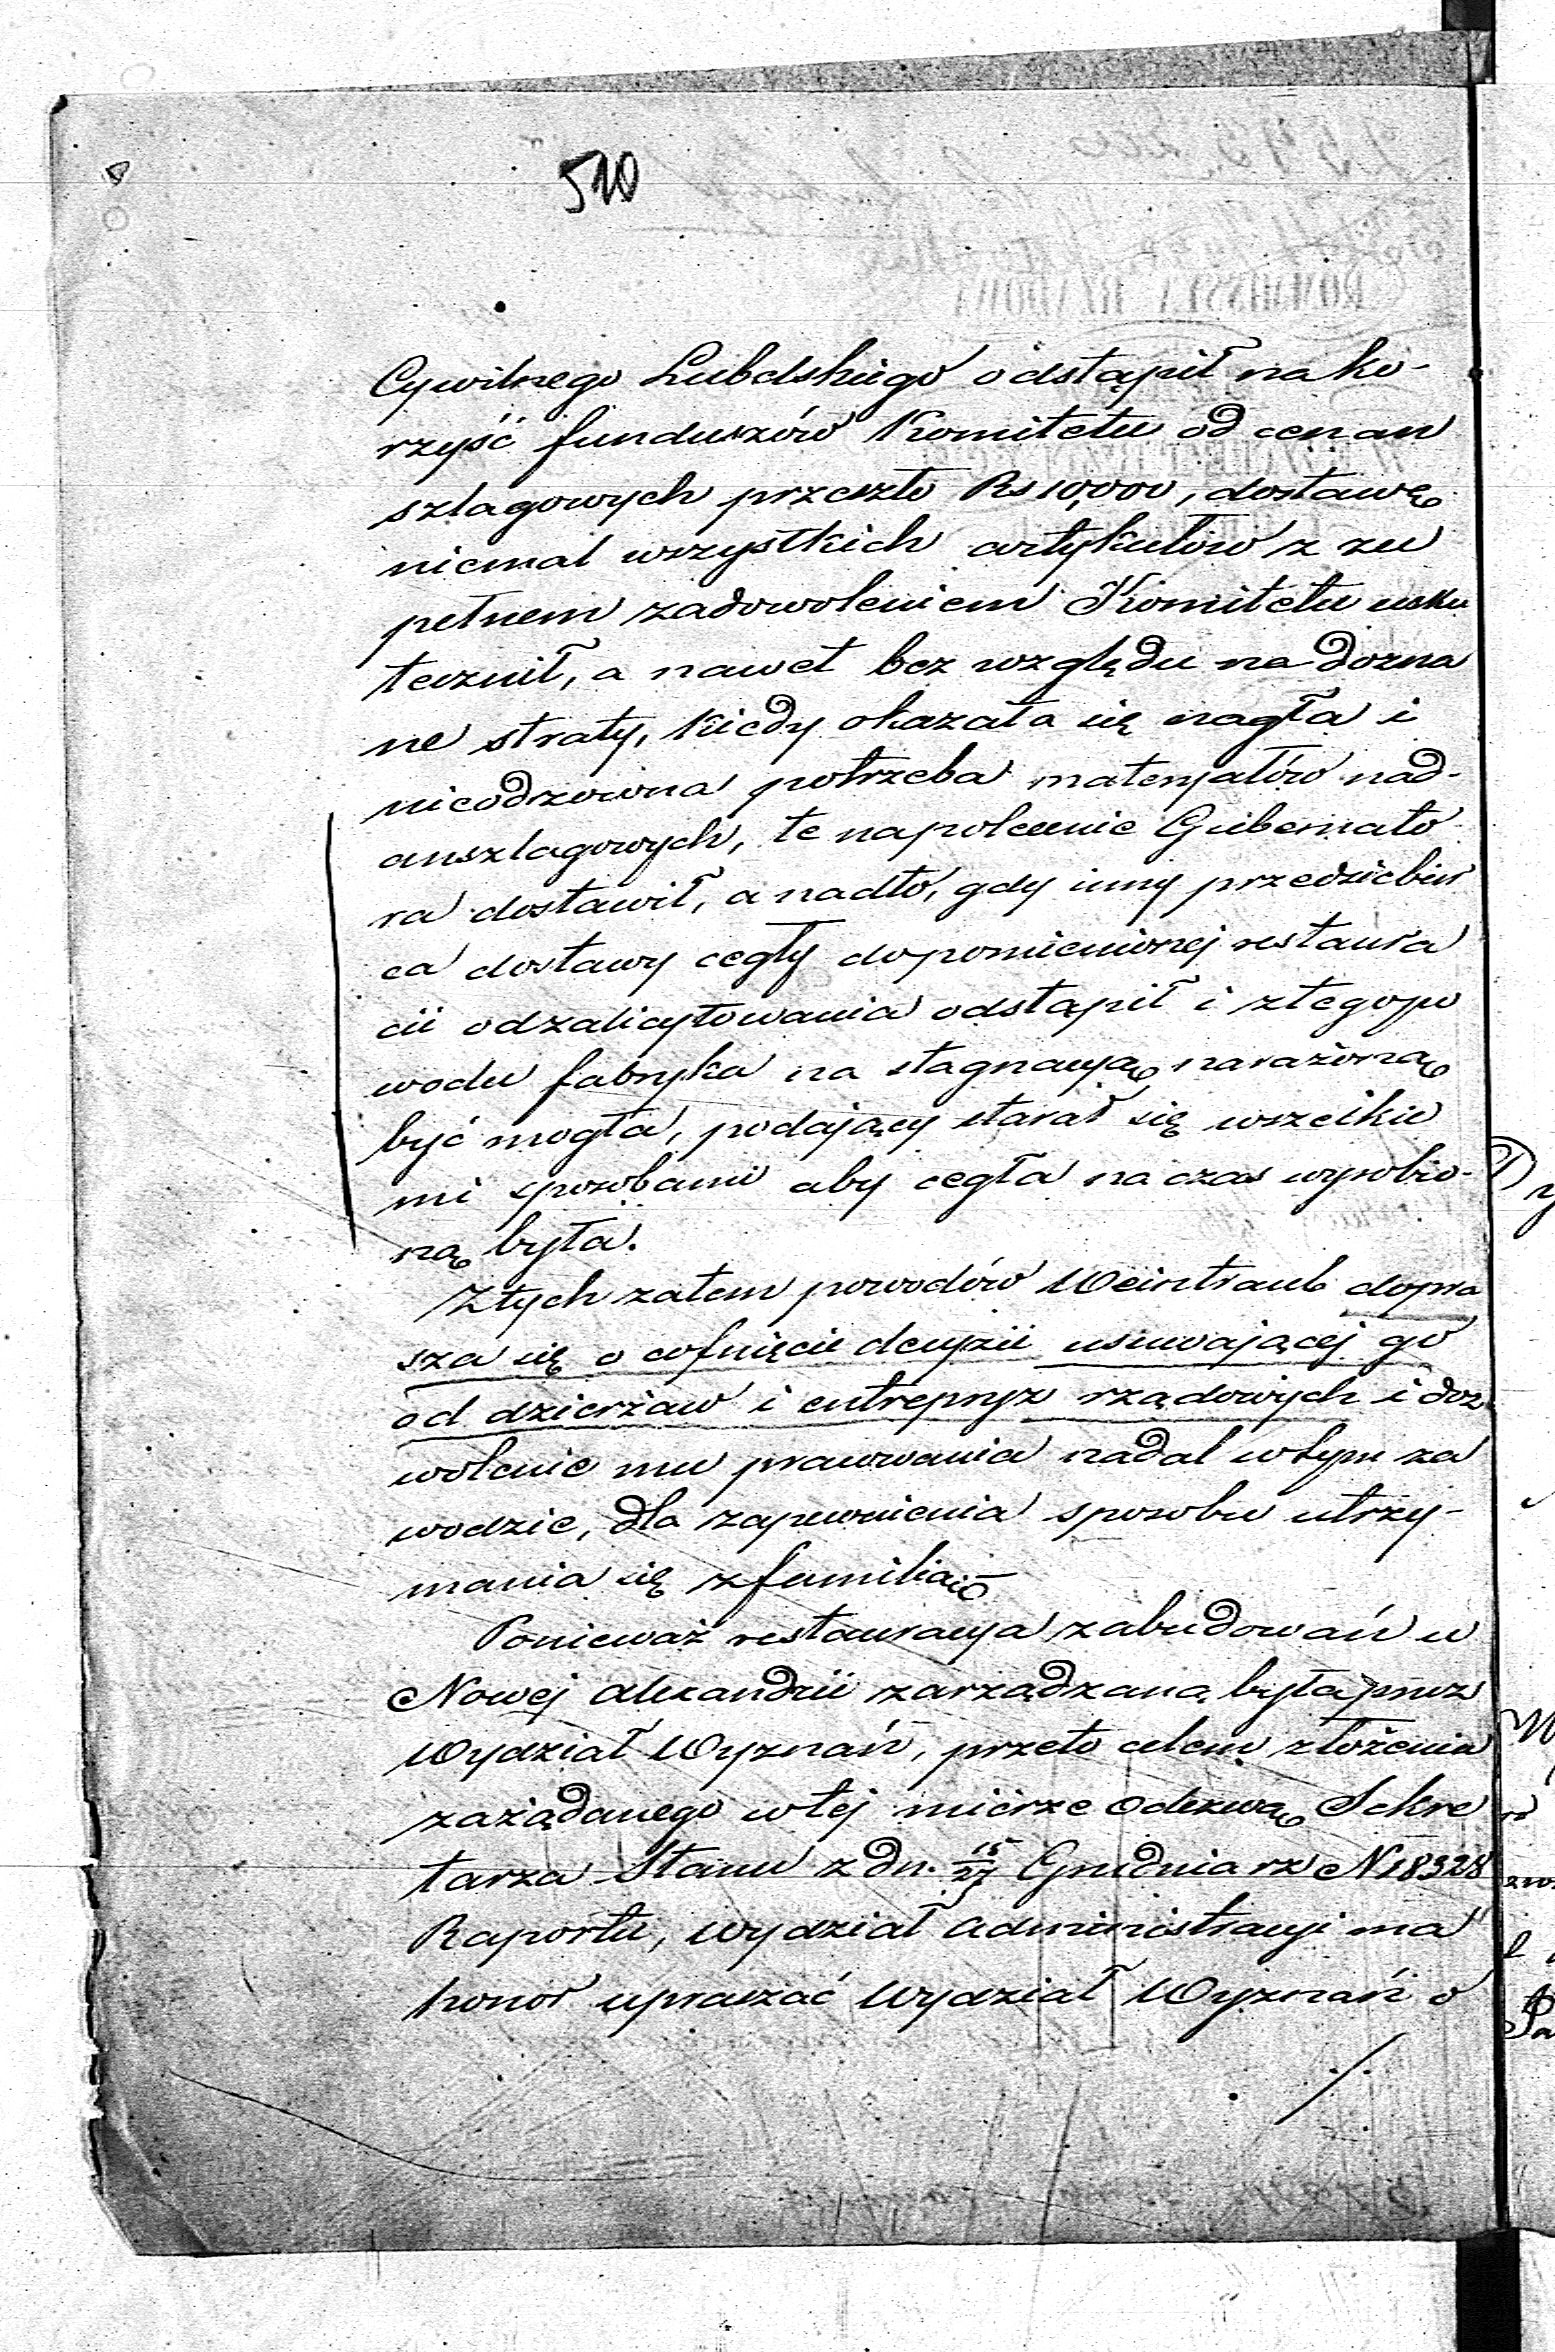 510
Cywilnego Lubelskiego odstąpił na ko-
rzyść funduszów Komitetu od cen an
szlagowych przeszło Rs 10,000, dostawę
niemal wszystkich artykułów z zu
pełnem zadowoleniem Komitetu usku
tecznił, a nawet bez względu na dozna
ne straty, kiedy okazała się nagła i
nieodzowna potrzeba materjałów nad-
anszlagowych, te na polecenie Gubernato
ra dostawił, a nadto, gdy inny przedsiębior
ca dostawy cegły do pomienionej restaura
cii od zalicytowania odstąpił i z tego po
wodu fabryka na stagnacyą narażoną
być mogła, podający starał się wszelkie
mi sposobami aby cegła na czas wyrobio-
ną była.
Z tych zatem powodów Weintraub dopra
sza się o cofnięcie decyzii usuwającej go
od dzierżaw i entrepryz rządowych i doz
wolenie mu pracowania nadal w tym za
wodzie, dla zapewnienia sposobu utrzy-
mania się z familią
Ponieważ restauracya zabudowań w
Nowej Alexandrii zarządzaną była przez
Wydział Wyznań, przeto celem złożenia
zażądanego w tej mierze Odezwą Sekre
tarza Stanu z dn. 15/27 Grudnia rz N 18328
Raportu, Wydział Administracyi ma
honor upraszać Wydział Wyznań o
./.